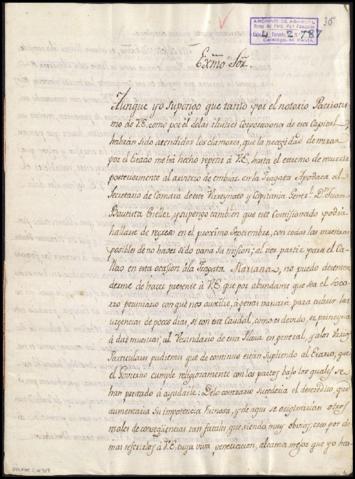 ARCHIVO DE ABASCAL
787
36
Exmo. Sor.
Aunque yo supongo que tanto por el notorio Patriotismo
de V.E. como por el de las ilustres Corporaciones de esa Capital
habrán sido atendidos los clamores, que la necesidad de mirar
por el Erario me ha hecho repetir á V.E. hasta el extremo de
posteriormente al arrivo de embiar en la Fragata Apodaca al
Secretario de Camara de este Vireynato y Capitania Genl. Dn. Juan
Bautista y supongo tambien que este Comisionado podria
hallarse de regreso en el proximo Septiembre, con todas las muestras
posibles de no haber sido vana su mision; al ver partir para el Callao
en esta ocasion la Fragata Mariana, no puedo
de hacer presente á V.E. que por abundante que sea el socorro
pecuniario con que nos auxilie, á penas bastará para cubrir las
urgencias de pocos dias, si con este Caudal, como es devido, se
á dar muestras al Vecindario de esta Plaza en general, y á los varios
Particulares pudientes que de continuo están supliendo al Erario, que
el Govierno cumple religiosamente con los pactos bajo los quales se
han prestado á ayudarle. De lo contrario sucederia el descredito, que
aumentaria su impotencia
males de conseqüencias tan fatales que siendo muy obvias,
V.E. cuya penetracion, alcanza mejor que yo